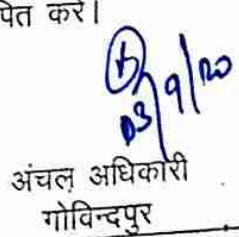 पित करें।
03/9/20
अंचल अधिकारी
गोविन्दपुर